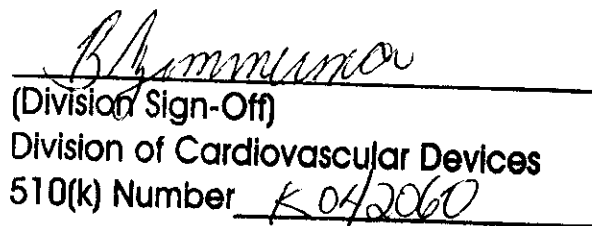 BZimmerman
(Division Sign-Off)
Division of Cardiovascular Devices
510(k) Number K042060